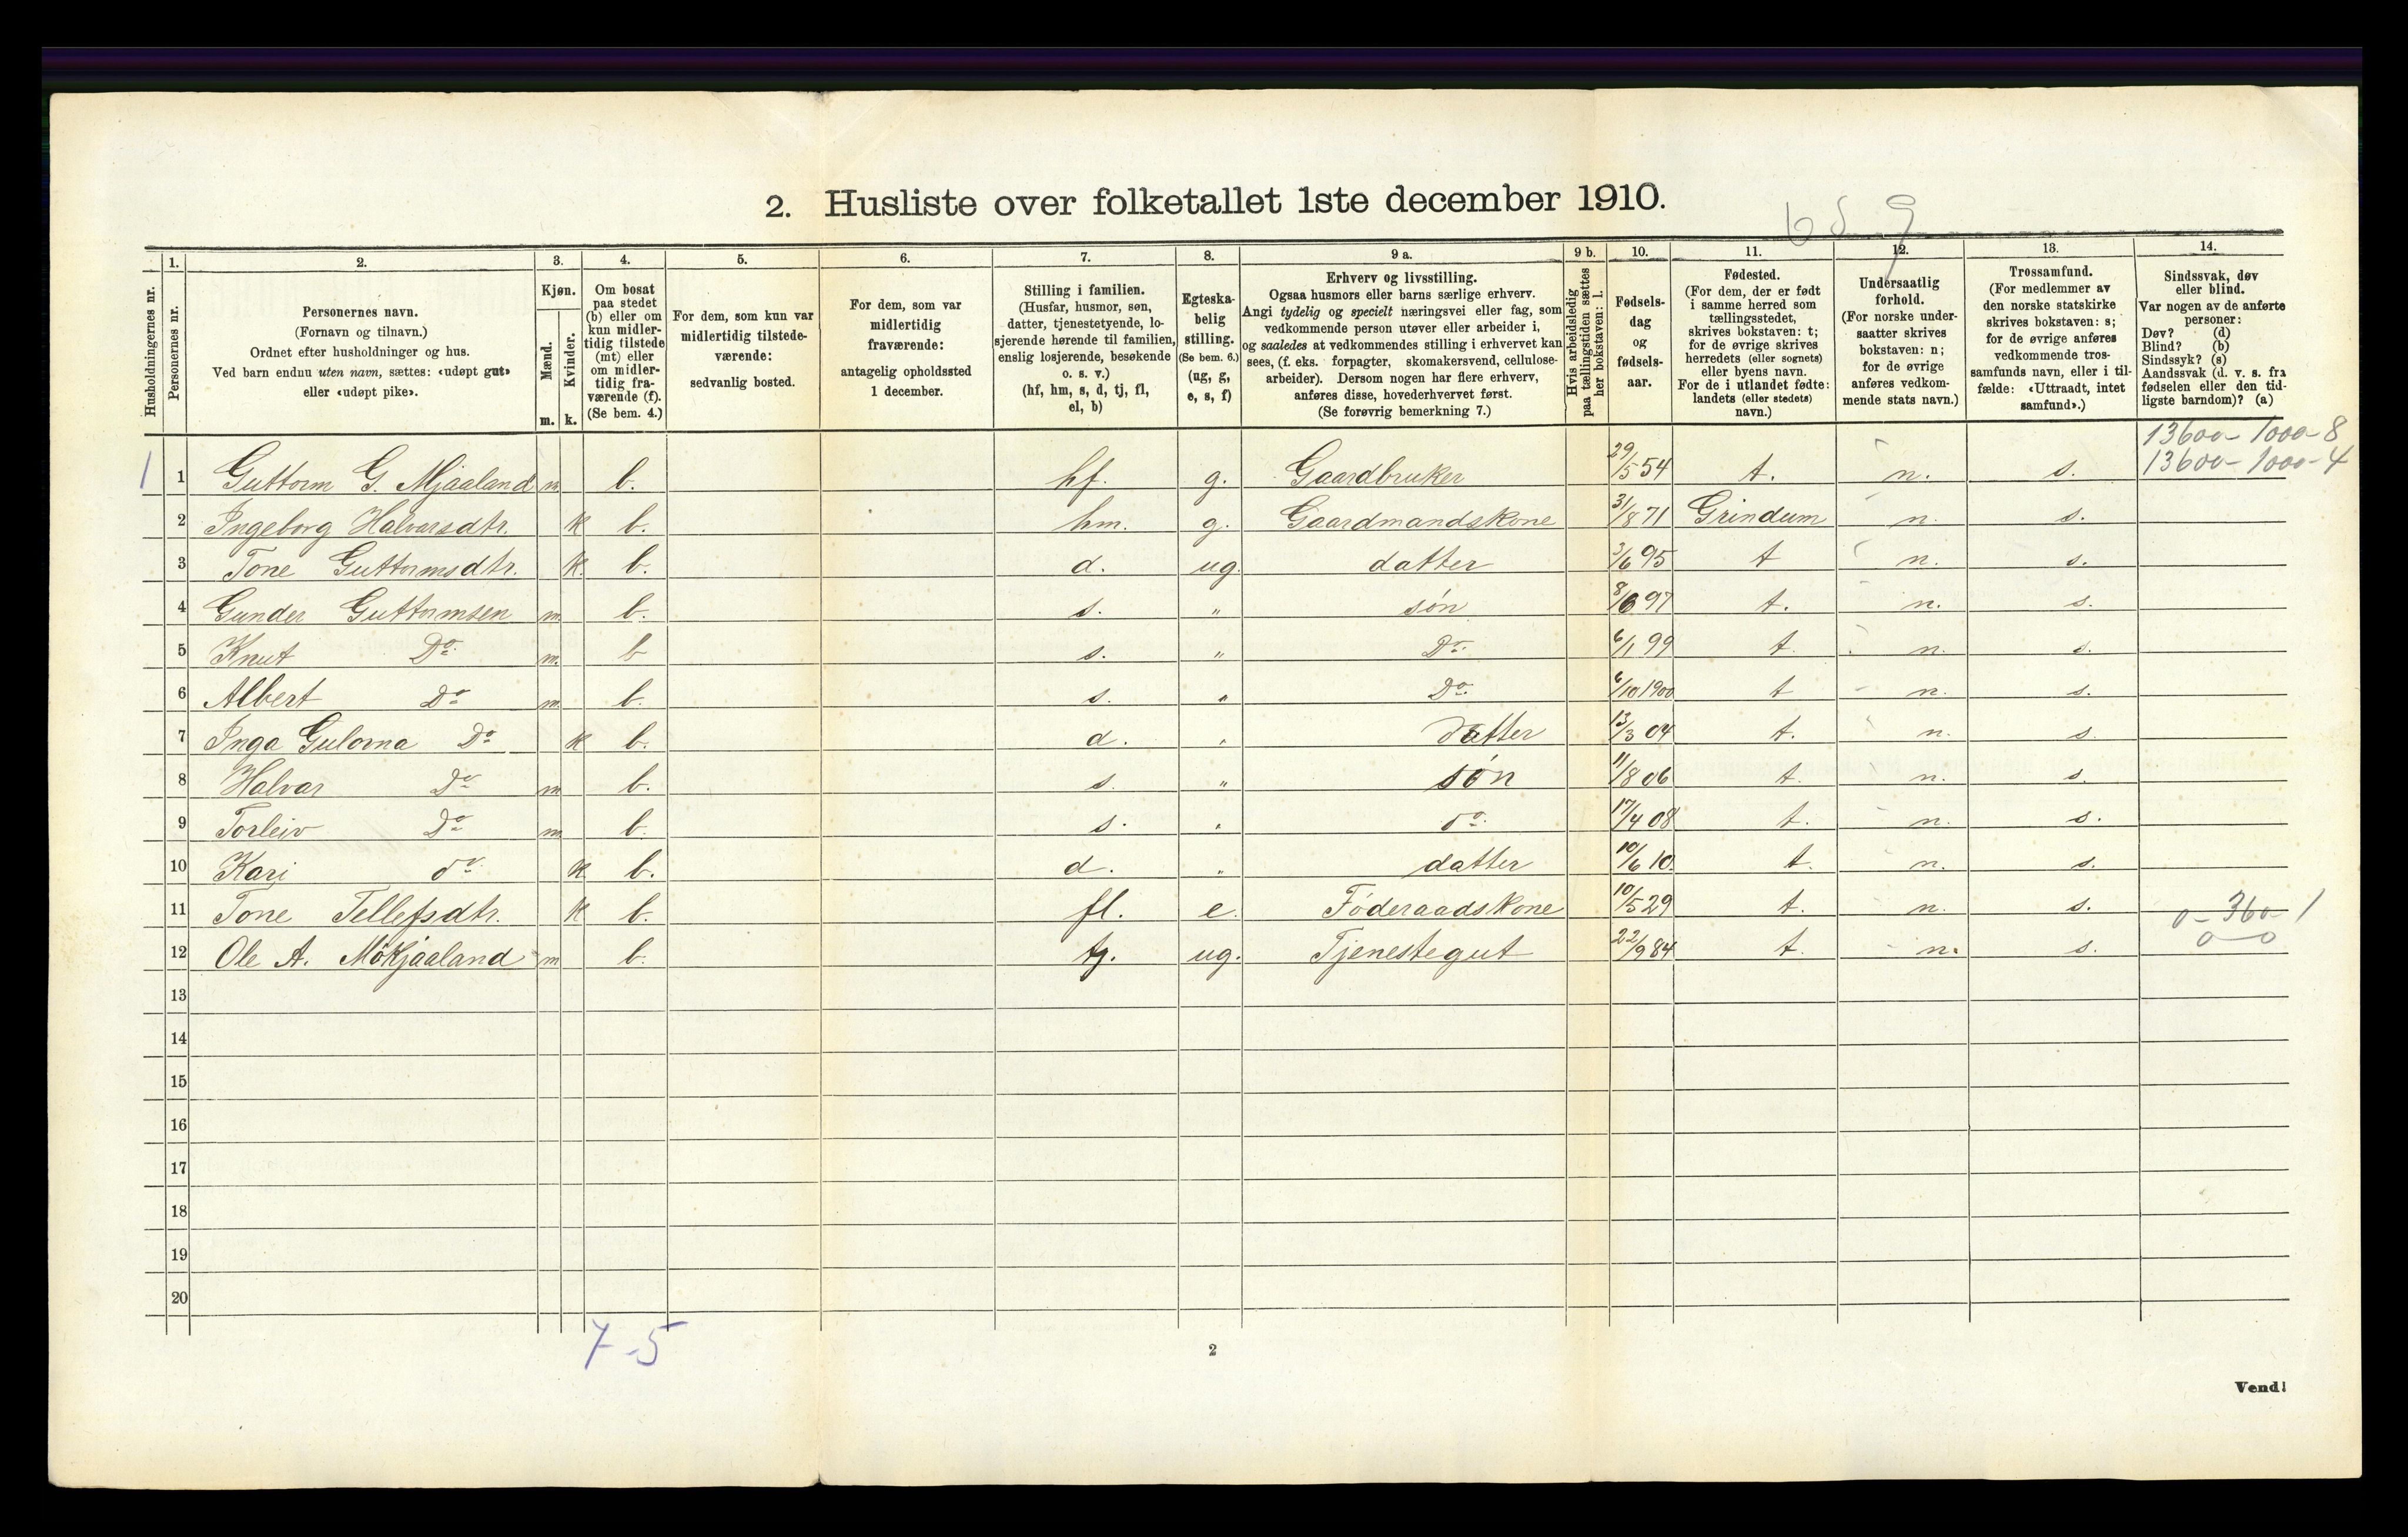 2. Husliste over folketallet 1ste december 1910.
6 S 9
Husholdningernes nr.
1.
Personernes nr.
2.
Personernes navn.
(Fornavn og tilnavn.)
Ordnet efter husholdninger og hus.
Ved barn endnu uten navn, sættes: «udøpt gut»
eller «udøpt pike».
3.
Kjøn.
Mænd.
Kvinder.
m. k.
4.
Om bosat
paa stedet
(b) eller om
kun midler-
tidig tilstede
(mt) eller
om midler-
tidig fra-
værende (f).
(Se bem. 4.)
5.
For dem, som kun var
midlertidig tilstede-
værende:
sedvanlig bosted.
6.
For dem, som var
midlertidig
fraværende:
antagelig opholdssted
1 december.
7.
Stilling i familien.
(Husfar, husmor, søn,
datter, tjenestetyende, lo-
sjerende hørende til familien,
enslig losjerende, besøkende
o. s. v.)
(hf, hm, s, d, tj, fl,
el, b)
8.
Egteska-
belig
stilling.
(Se bem. 6.)
(ug, g,
e, s, f)
9 a.
Erhverv og livsstilling.
Ogsaa husmors eller barns særlige erhverv.
Angi tydelig og specielt næringsvei eller fag, som
vedkommende person utøver eller arbeider i,
og saaledes at vedkommendes stilling i erhvervet kan
sees, (f. eks. forpagter, skomakersvend, cellulose-
arbeider). Dersom nogen har flere erhverv,
anføres disse, hovederhvervet først.
(Se forøvrig bemerkning 7.)
9 b.
Hvis arbeidsledig
paa tællingstiden sættes
her bokstaven: l.
10.
Fødsels-
dag
og
fødsels-
aar.
11.
Fødested.
(For dem, der er født
i samme herred som
tællingsstedet,
skrives bokstaven: t;
for de øvrige skrives
herredets (eller sognets)
eller byens navn.
For de i utlandet fødte:
landets (eller stedets)
navn.)
12.
Undersaatlig
forhold.
(For norske under-
saatter skrives
bokstaven: n;
for de øvrige
anføres vedkom-
mende stats navn.)
13.
Trossamfund.
(For medlemmer av
den norske statskirke
skrives bokstaven: s;
for de øvrige anføres
vedkommende tros-
samfunds navn, eller i til-
fælde: «Uttraadt, intet
samfund».)
14.
Sindssvak, døv
eller blind.
Var nogen av de anførte
personer:
Døv? (d)
Blind? (b)
Sindssyk? (s)
Aandssvak (d. v. s. fra
fødselen eller den tid-
ligste barndom)? (a)
13600 - 1000 - 8
13600 - 1000 - 4
1 1 Guttorm G. Mjaaland m b. hf. g. Gaardbruker 29/5 54 t. n. s.
2 Ingeborg Halvarsdtr. k b. hm. g. Gaardmandskone 31/8 71 Grindum n. s.
3 Tone Guttormsdtr. k. b. d. ug. datter 3/6 95 t n. s.
4 Gunder Guttormsen m. b. s. " søn 8/6 97 t. n. s.
5 Knut Do m. b s. " Do 6/1 99 t. n. s.
6 Albert Do m. b. s. " Do 6/10 1900 t n. s.
7 Inga Gulovna Do k b. d. " datter 13/3 04 t. n. s.
8 Halvar Do m b. s. " søn 11/8 06 t. n. s.
9 Torleiv Do m b. s. " do 17/4 08 t. n. s.
10 Kari do k b. d. " datter 10/6 10. t. n. s.
11 Tone Tellefsdtr. k b. fl. e. Føderaadskone 10/5 29 t. n. s. 0 - 360 - 1
12 Ole A. Møkjaaland m b. tj. ug. Tjenestegut 22/9 84 t. n. s. 0 - 0
13
14
15
16
17
18
19
20
7 - 5
2
Vend!